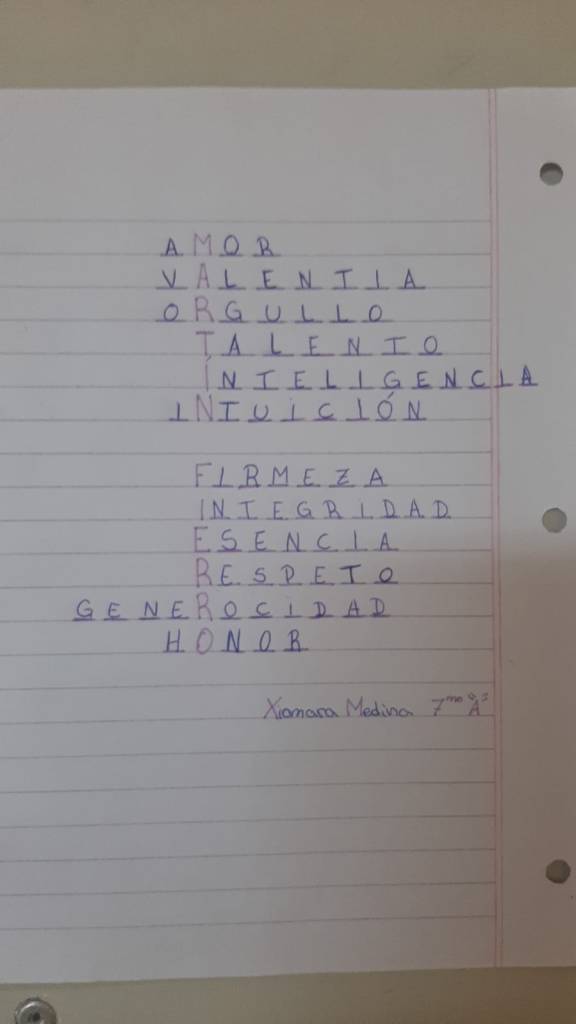 AMOR
VALENTIA
ORGULLO
TALENTO
ÍNTELIGENCIA
INTUICIÓN
FIRMEZA
INTEGRIDAD
ESENCIA
RESPETO
GENEROCIDAD
HONOR
Xiomara Medina 7mo "A"